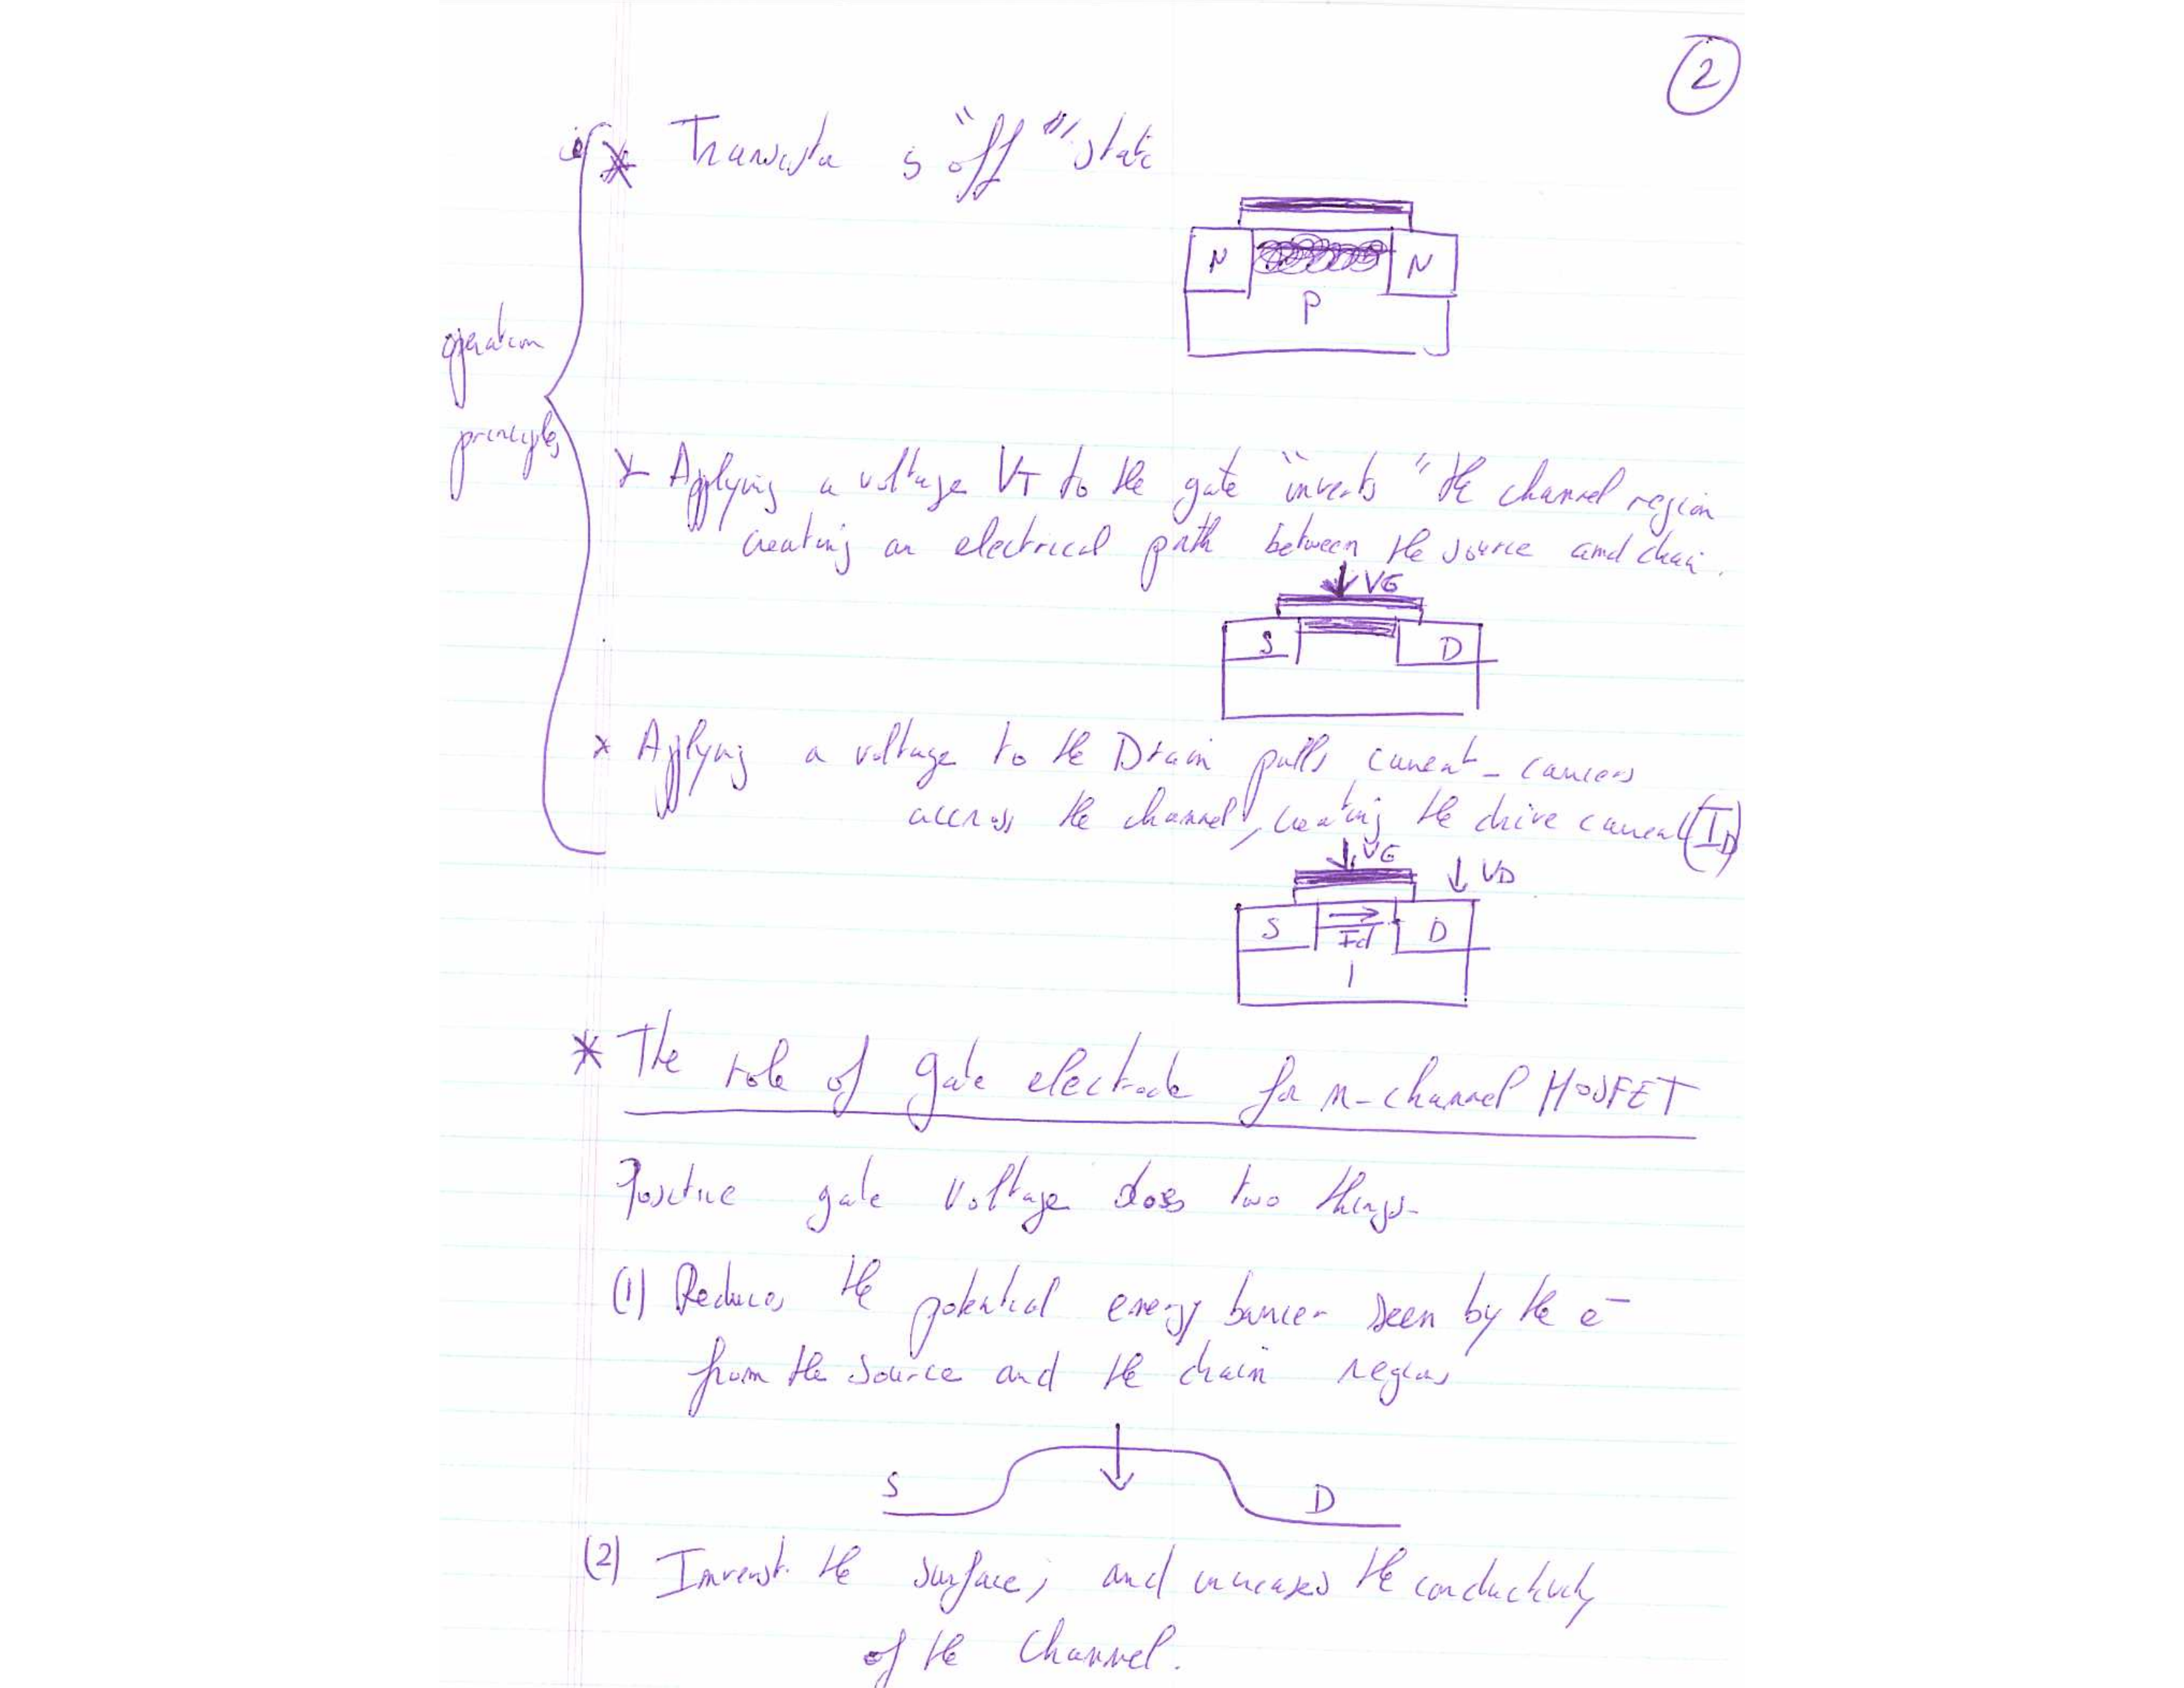 2
* Transistor is "off" state
N N
P
operation
principles
* Applying a voltage VT to the gate "inverts" the channel region
creating an electrical path between the source and drain.
VG
S D
* Applying a voltage to the Drain pulls current-carriers
accross the channel, creating the drive current (ID)
VG VD
S Id D
* The role of gate electrode for n-channel MOSFET
Positive gate voltage does two things-
(1) Reduces the potential energy barrier seen by the e-
from the source and the drain regions
S D
(2) Inverst the surface, and increases the conductivity
of the Channel.